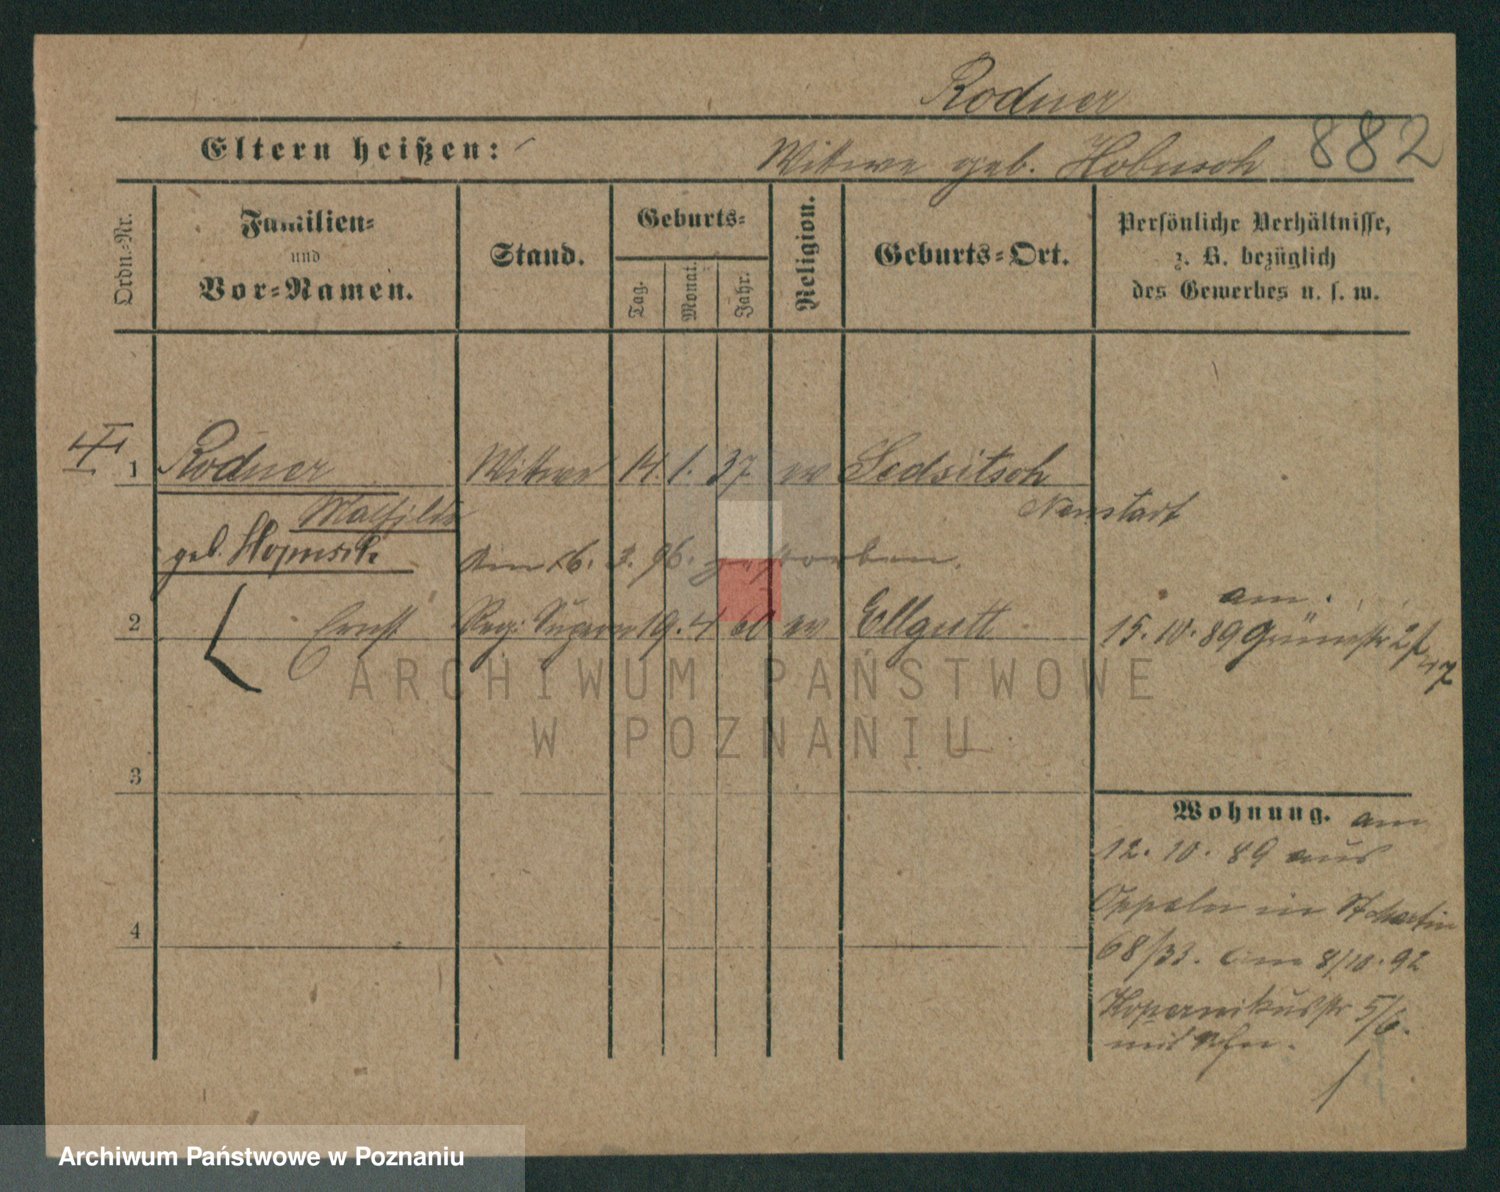 Rodner
882
Eltern heißen:
Wittwe geb. Hobusch
Ordn.-Nr.
Familien-
und
Vor-Namen.
Stand.
Geburts-
Tag.
Monat.
Jahr.
Religion.
Geburts-Ort.
Persönliche Verhältnisse,
z. B. bezüglich
des Gewerbes u. s. w.
1 Rodner Wittwe 14. 1. 37 ev Sedsitsch
Mathilde Neustadt
geb. Am 16. 3. 96. gestorben.
am
2 Ernst Reg: 19. 4 60 ev Ellgutt 15. 10. 89 Grünestr
ARCHIWUM PAŃSTWOWE
W POZNANIU
3
Wohnung. am
12. 10. 89 aus
4
Oppeln in St Martin
68/33. Am 8/10. 92
Kopernikusstr 5/6.
mit
Archiwum Państwowe w Poznaniu